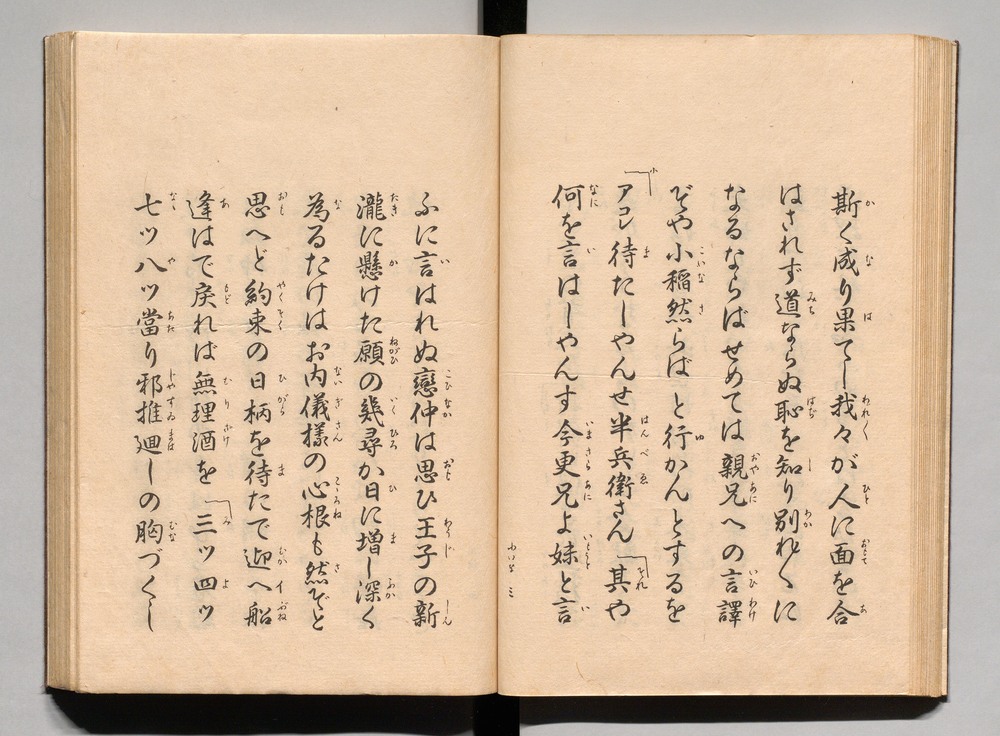 斯く成り果てし我々が人に面を合
はされず道ならぬ恥を知り別れ〳〵に
なるならばせめては親兄への言譯
ぞや小稲然らばと行かんとするを
小「アコレ待たしやんせ半兵衛さん「其や
何を言はしやんす今更兄よ妹と言
ふに言はれぬ戀仲は思ひ王子の新
瀧に懸けた願の幾尋か日に増し深く
為るたけはお内儀様の心根も然ぞと
思へど約束の日柄を待たで迎へ船
逢はで戻れば無理酒を「三ツ四ツ
七ツ八ツ當り邪推廻しの胸づくし